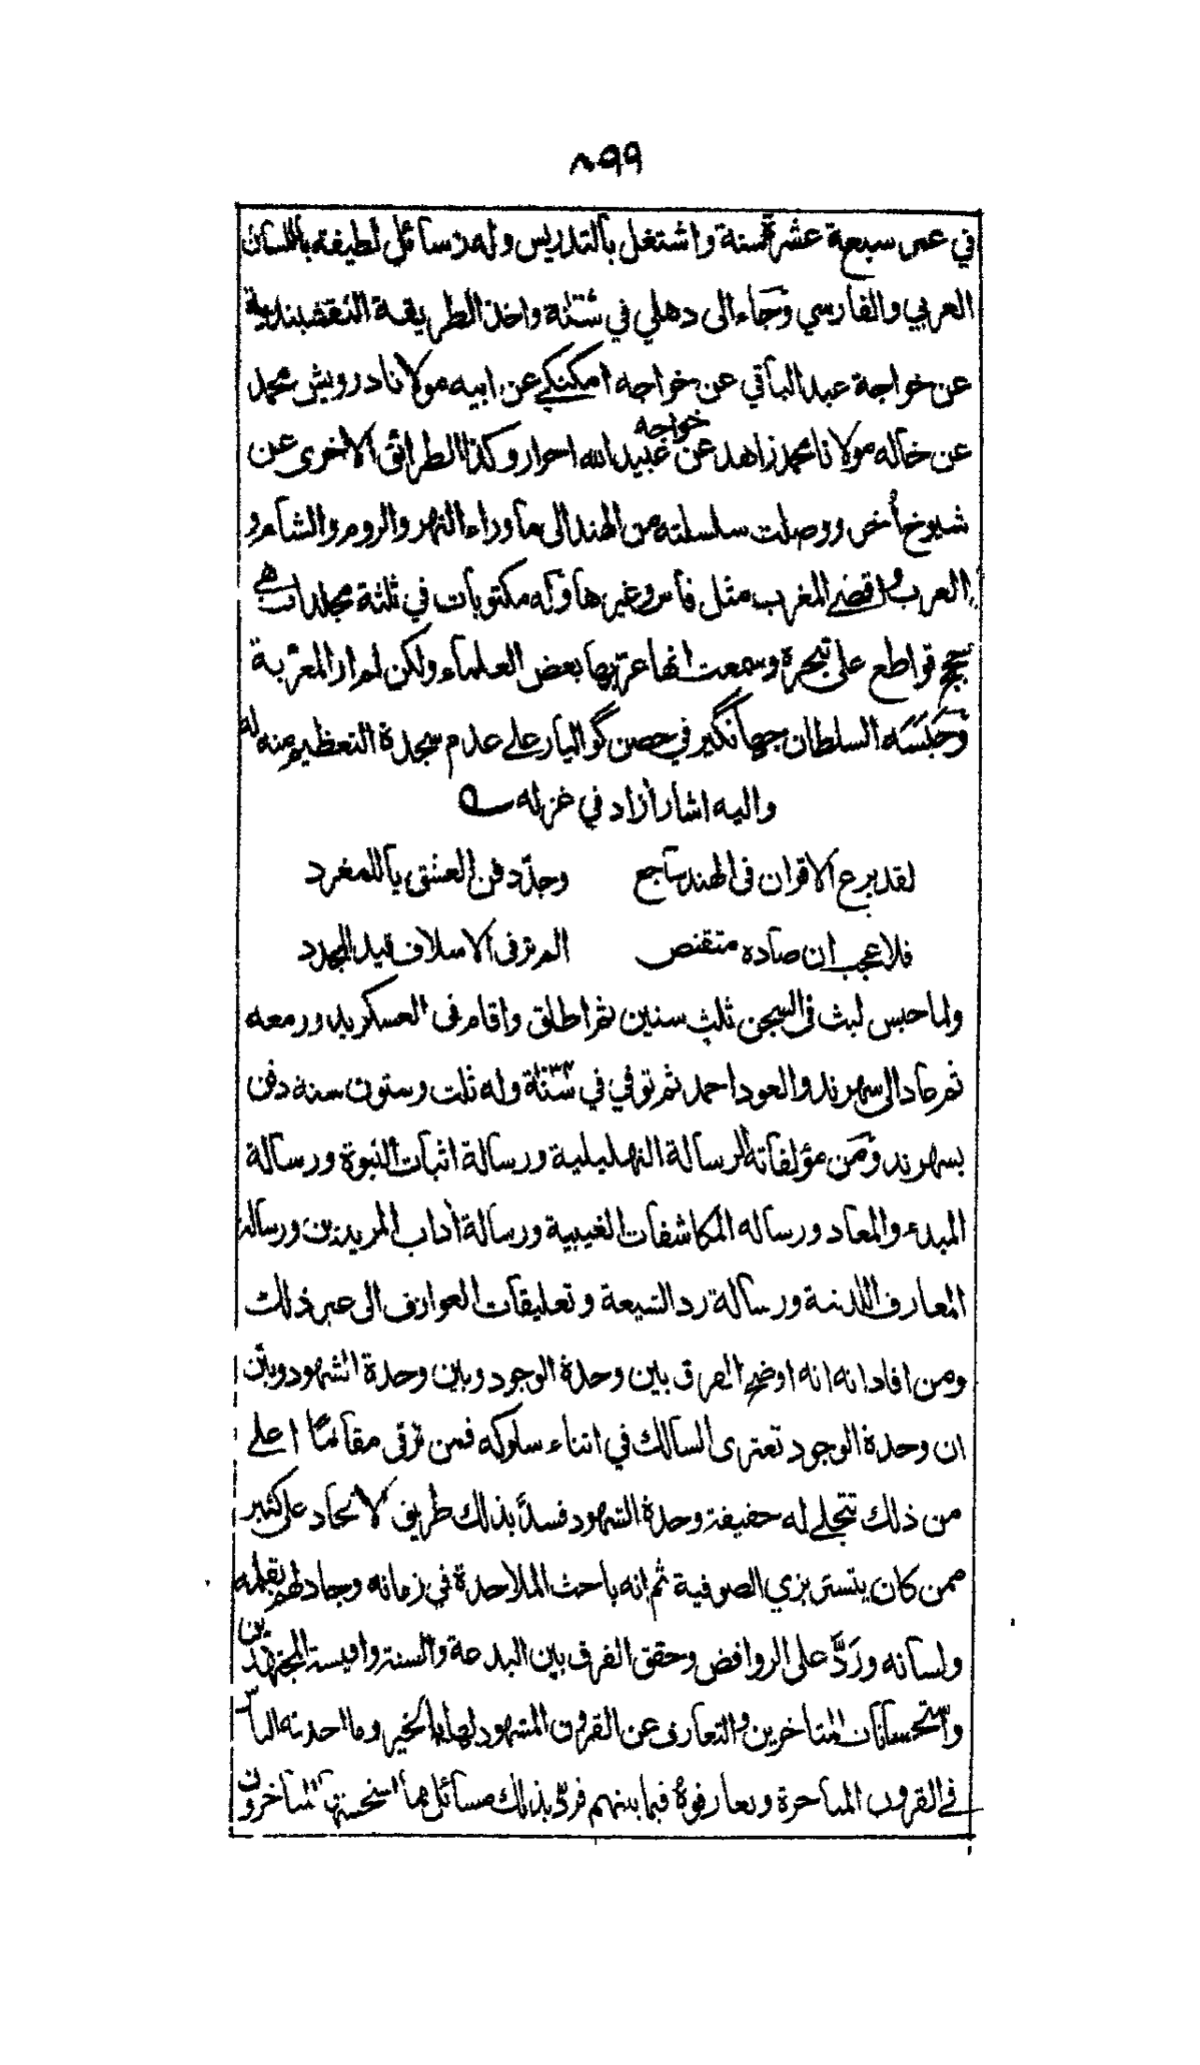 ٨٩٩
في عمر سبعة عشرة سنة واشتغل بالتدريس وله رسائل لطيفة باللسان
العربي والفارسي وجاء الى دهلي في سنة واخذ الطريقة النقشبندية
عن خواجة عبد الباقي عن خواجه امكنكے عن ابيه مولانا درويش محمد
عن خاله مولانا محمد زاهد عن خواجه عبيد الله احرار وكذا الطرائق الاخرى عن
شيوخ أخر ووصلت سلسلته من الهند الى ما وراء النهر والروم والشام و
العرب واقصے المغرب مثل فاس وغيرها وله مكتوبات في ثلثة مجلدات هے
حجج قواطع على تبحره وسمعت انها عربها بعض العلماء ولكن لم ار المعربة
وحبسه السلطان جهانگير في حصن گواليار علے عدم سجدة التعظيم منه له
واليه اشار آزاد في غزله
لقد برع الاقران فى الهند ساجع وجدّد فن العشق يا للمغرد
فلا عجب ان صاده متقنص الم تر فى الاسلاف قيد المجدد
ولما حبس لبث فى السجن ثلث سنين ثم اطلق واقام فى العسكر يدور معه
ثم عاد الى سهرند والعود احمد ثم توفي في سنة وله ثلث وستون سنة دفن
بسهرند ومن مؤلفاته الرسالة التهليلية ورسالة اثبات النبوة ورسالة
المبدء والمعاد ورساله المكاشفات الغيبية ورسالة آداب المريدين ورسالة
المعارف اللدنية ورسالة رد الشيعة وتعليقات العوارف الى غير ذلك
ومن افاداته انه اوضح الفرق بين وحدة الوجود وبين وحدة الشهود وبيّن
ان وحدة الوجود تعترى السالك في اثناء سلوكه فمن ترقى مقامًا اعلے
من ذلك تتجلے له حقيقة وحدة الشهود فسدّ بذلك طريق الالحاد على كثير
ممن كان يتستر بزي الصوفية ثم انه باحث الملاحدة في زمانه وجادلهم بقلمه
ولسانه وردَّ على الروافض وحقق الفرق بين البدعة والسنة واقيسة المجتهدين
واستحسانات المتاخرين والتعارف عن القرون المشهود لها بالخير وما احدثه الناس
في القرون المتاخرة وتعارفوه فيما بينهم فردّ بذلك مسائل مما استحسنها المتاخرون